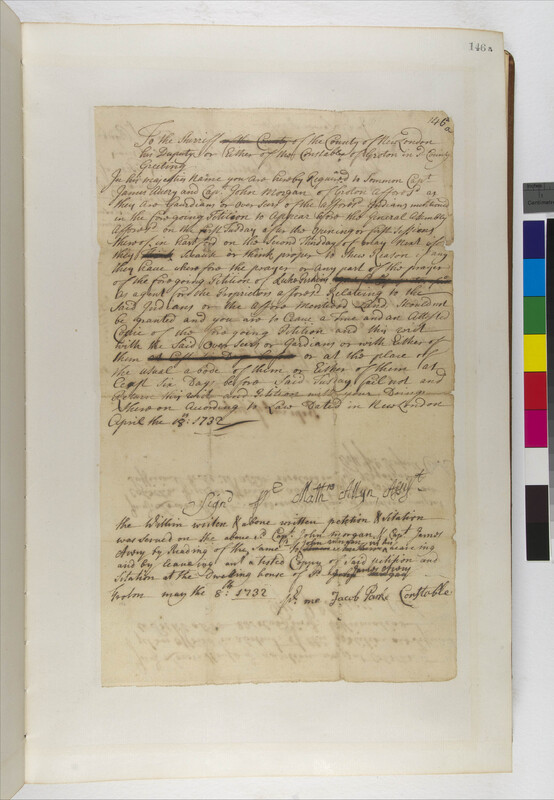 146a
146a
To the Sherriff of the County of New London
his Deputy or Either of the Constables of Groton in sd County
Greeting
In his majesties Name you are hereby Required to Summon Capt
James Avery and Capt John Morgan of Groton aforsd as
they are Guardians or over seers of the afforsd Indians mentioned
in the foregoing Petition to Appear before the General Assembly
afforsd on the first Tuesday after the opening or first Sessions
thereof in Hartford on the Second Thursday of May Next if
they Shall or think proper to Shew Reason if any
they have wherefore the prayer or Any part of the prayer
of the foregoing Petition of
as agent for the Proprietors afforsd Relating to the
Said Indians or the affore Mentioned Land Should not
be granted and you are to Leave a True and an Attested
Copie of the foregoing Petition and this writ
with the Said Over Seers or Gardians or with Either of
them or at the place of
the usual a bode of them or Either of them at
Least Six Days before Said Tusday fail not and
Returne this writ and Petition with your Doings
thereon According to Law Dated in New London
April the 18th: 1732
Signd Mathw Allyn, Assist
the Within writen & above written petition & Sitation
was served on the above sd Capt John Morgan, & Capt James
Avery by Reading of the Same John morgan in his hearing
and by leaving an atested Copey of said petition and
Sitation at the Dwelling house of sd James Avery
Groton may the 8th: 1732 pr me Jacob Park Constable